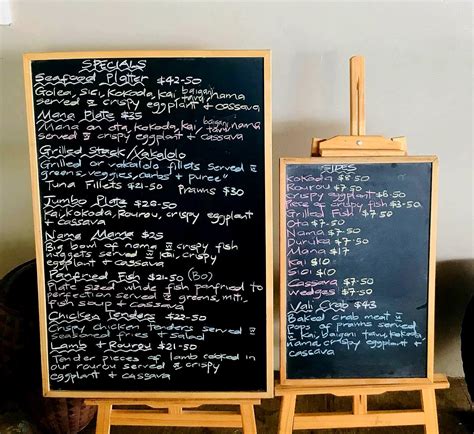 SPECIALS
Seafood Platter $42-50
Golea, sici, kokoda, kai, baigani, tavu, nama
served w crispy eggplant & cassava
Mana Plate $35
Mana on ota, kokoda, kai, baigani, tavu, nama
served w crispy eggplant
& cassava
Grilled Steak/Vakalolo
Grilled or vakalolo fillets served w
greens, veggies, carbs & puree
Tuna Fillets $21-50 Prawns $30
Jumbo Plate $20-50
Kai, kokoda, Rourou, crispy eggplant
& cassava
Nama Mama $25
Big bowl of nama w crispy fish
nuggets served w kai, crispy
eggplant & cassava
Panfried Fish $21-50 (BO)
Plate sized whole fish panfried to
perfection served w greens, miti,
fish soup & cassava
Chicken Tenders $22-50
Crispy chicken tenders served w
seaboard fries & salad
Lamb & Rourou $21-50
Tender pieces of lamb cooked in
our rourou served w crispy
eggplant & cassava
SIDES
Kokoda $8-50
Rourou $7-50
Crispy eggplant $6-50
Pcs of crispy fish $3-50
Grilled Fish $7-50
Ota $7-50
Nama $7-50
Duruka $7-50
Mana $17
Kai $10
Sici $10
Cassava $7-50
Wedges $7-50
Vali Crab $43
Baked crab meat w
pops of prawns served
w kai, baigani tavu, kokoda,
nama, crispy eggplant &
cassava